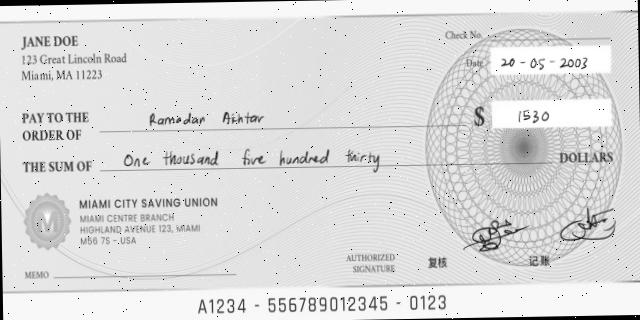 JANE DOE
123 Great Lincoln Road
Miami, MA 11223
Check No.
Date 20-05-2003
PAY TO THE
ORDER OF Ramadan Akhtar
$ 1530
THE SUM OF One thousand five hundred thirty DOLLARS
MIAMI CITY SAVING UNION
MIAMI CENTRE BRANCH
HIGHLAND AVENUE 123, MIAMI
M56 7S -.USA
AUTHORIZED
SIGNATURE
复核 记账
MEMO
A1234 - 556789012345 - 0123